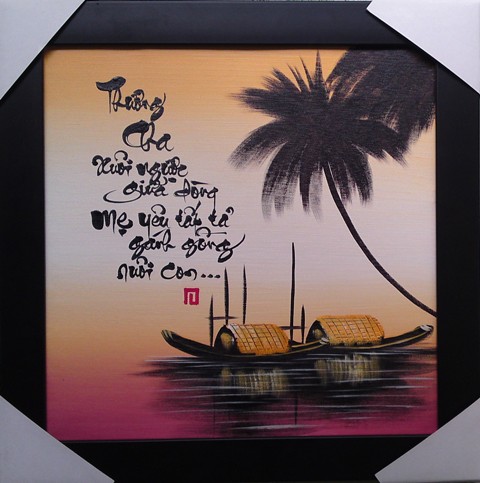 Thương
Cha
xuôi ngược
giữa dòng
Mẹ yêu tất tả
gánh gồng
nuôi con...